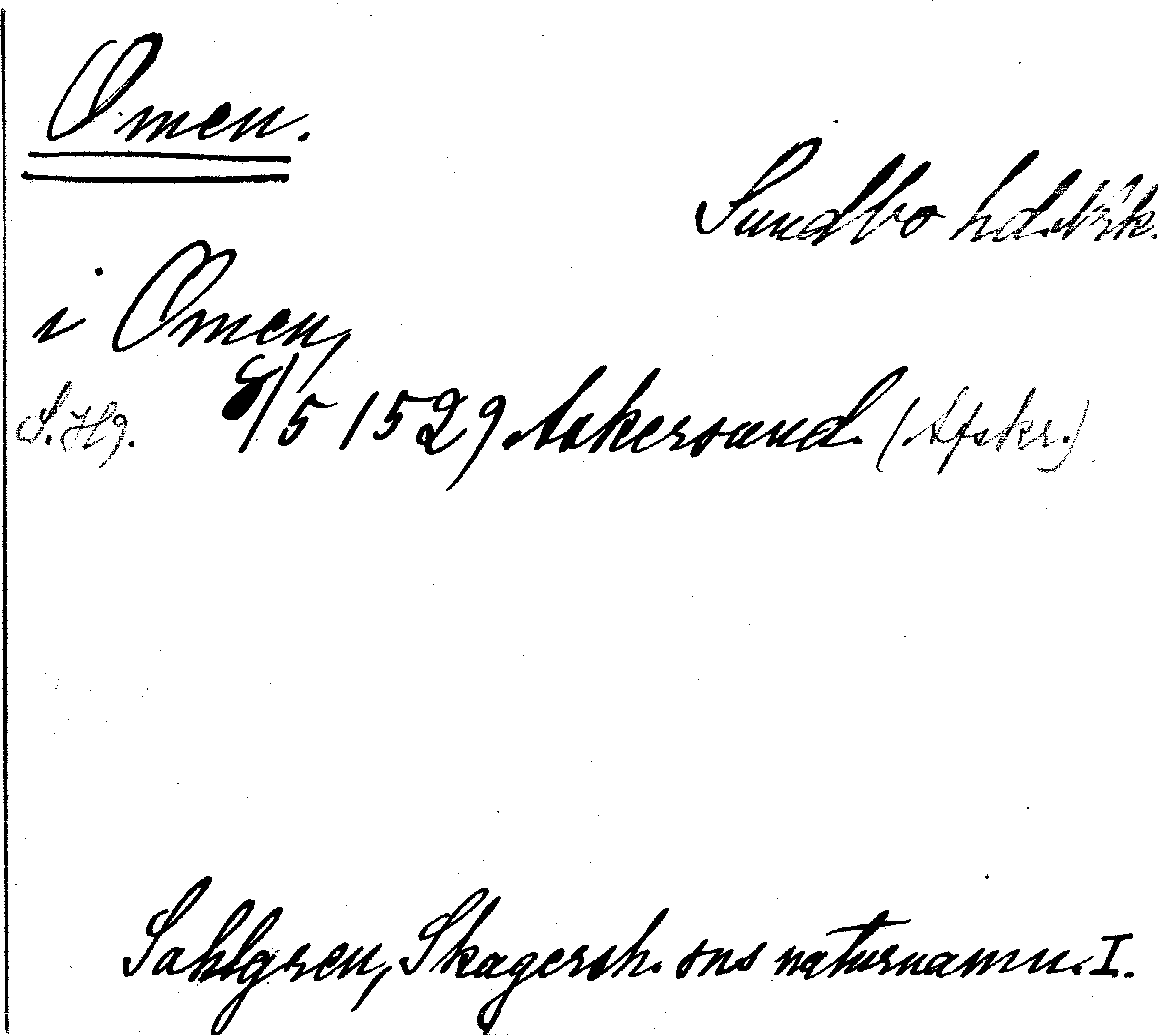 Omen.
Sundbo hd. Nrk.
i Omen,
S. Hg. 8/5 1529 Askersund. (Afskr.)
Sahlgren, Skagersh. sns naturnamn. I.